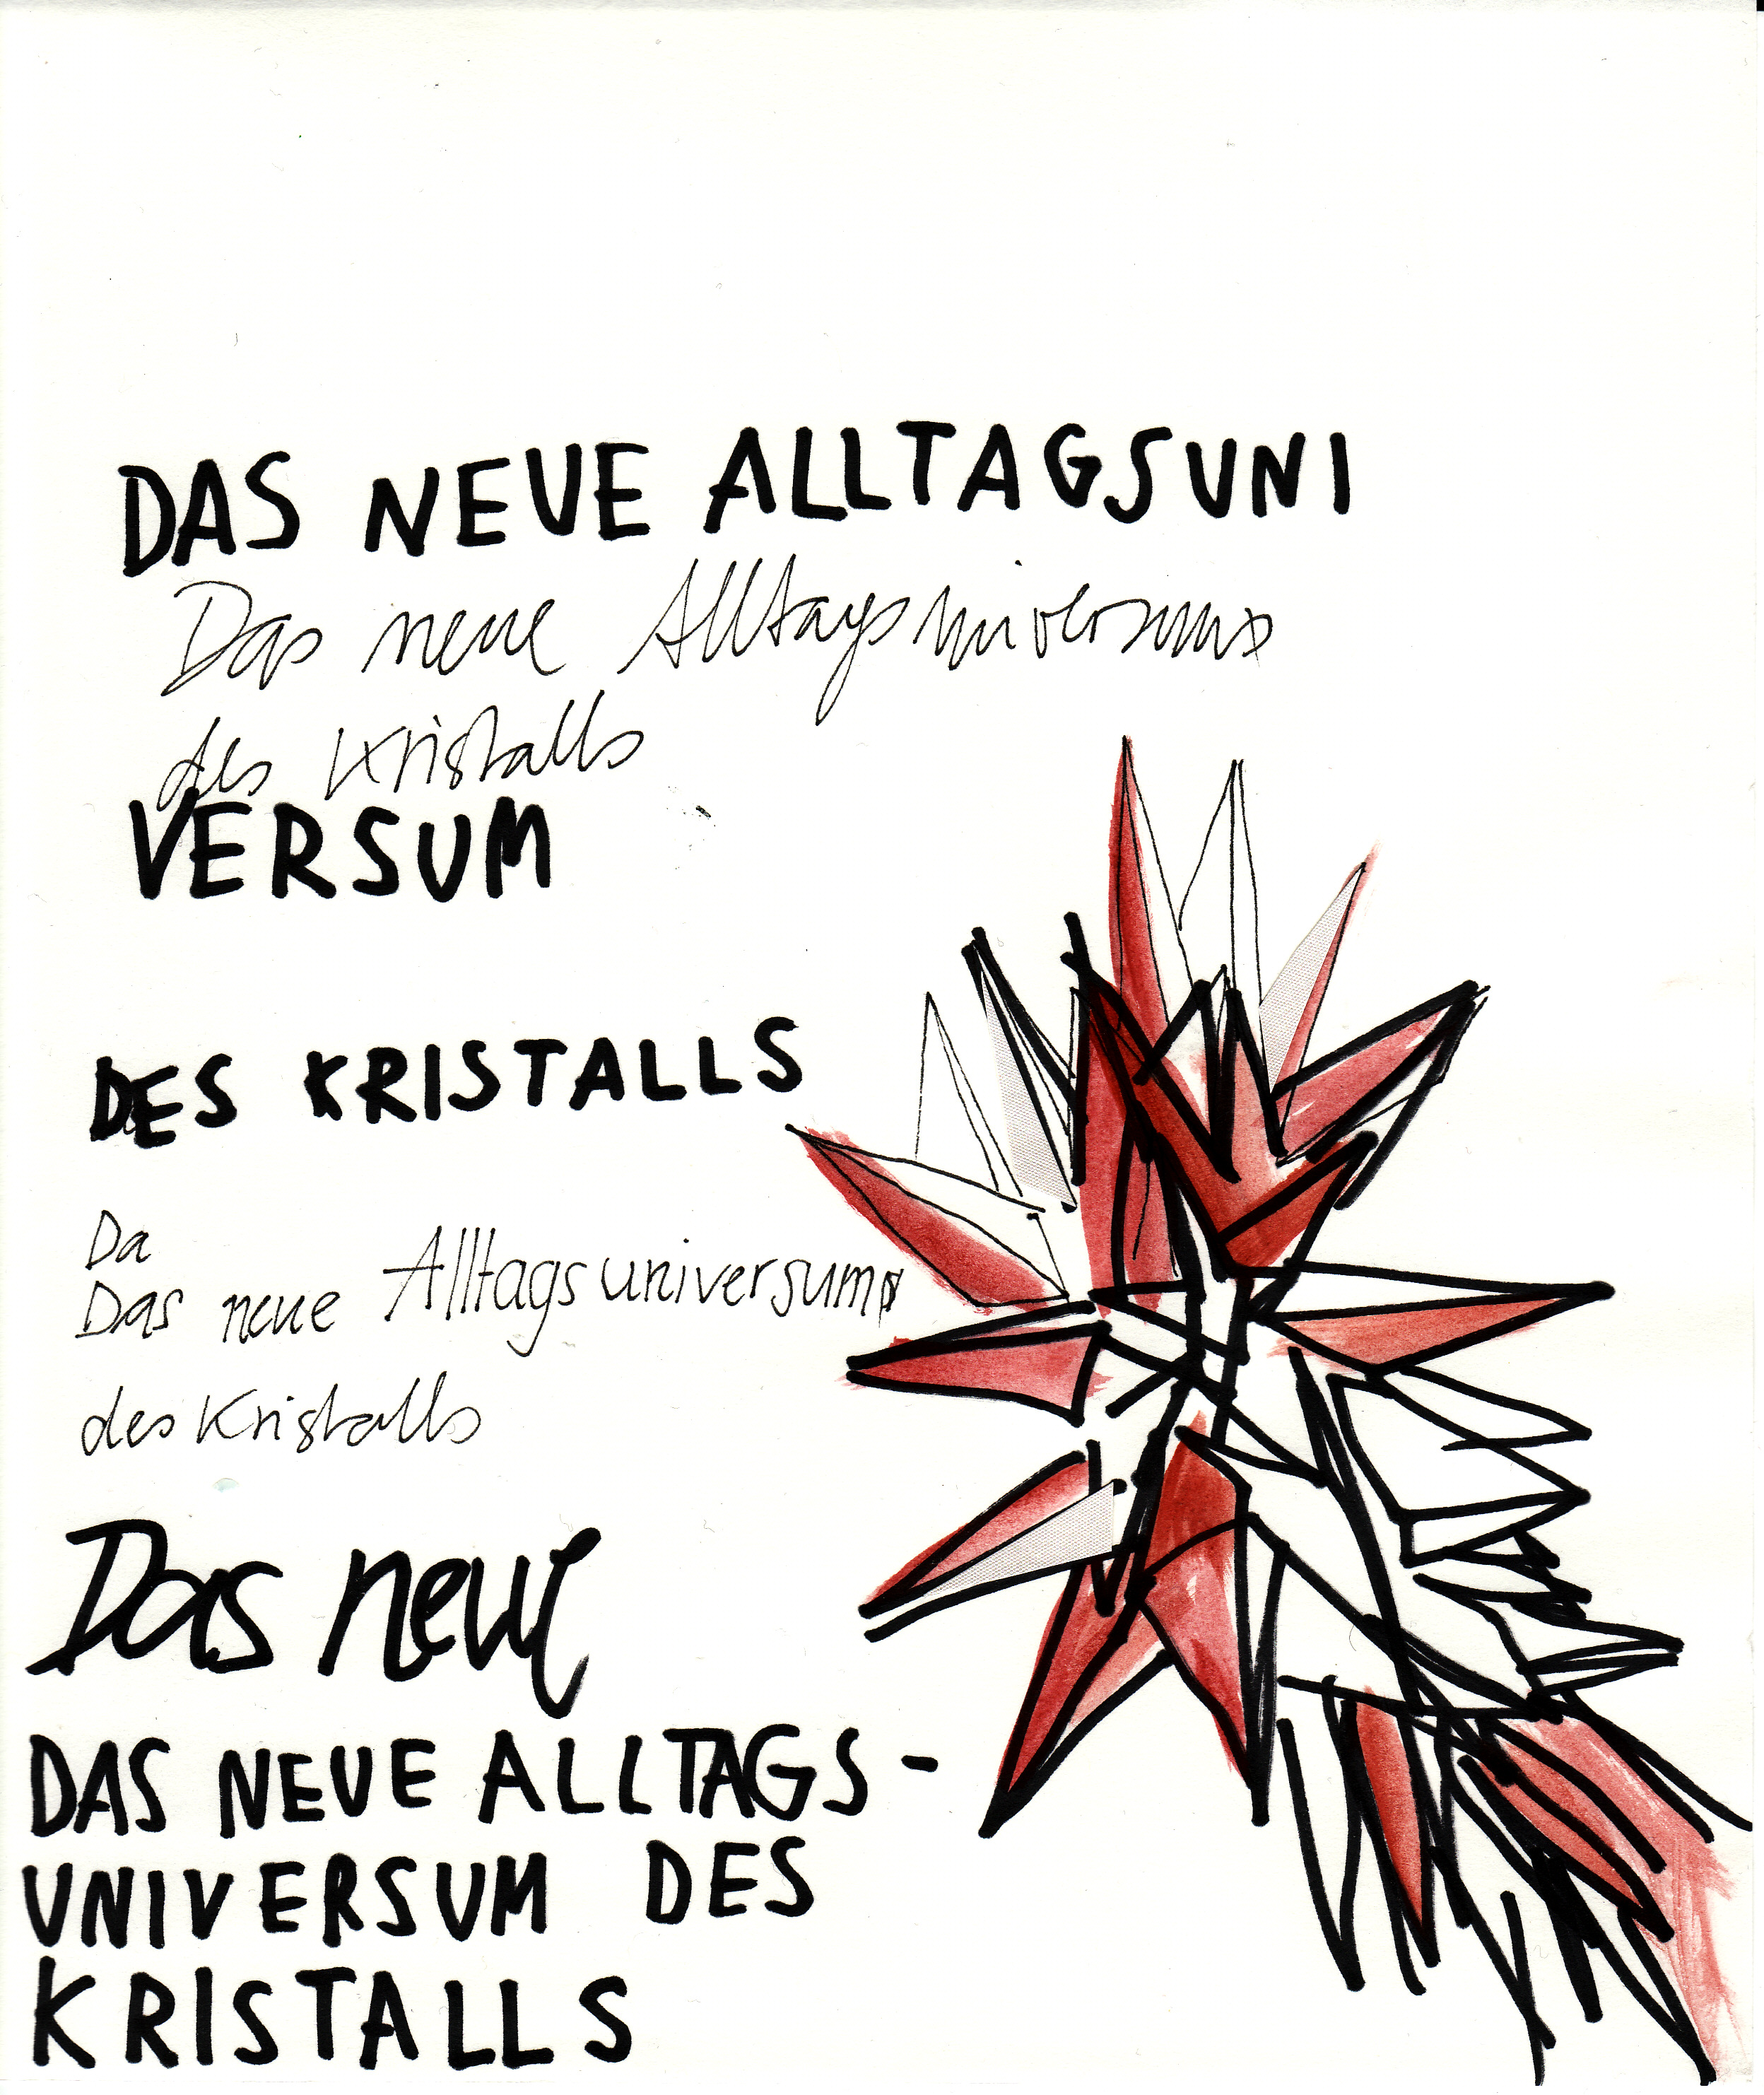 DAS NEUE ALLTAGSUNI
Das neue Alltagsuniversum
des Kristalls
VERSUM
DES KRISTALLS
Da
Das neue Alltagsuniversum
des Kristalls
Das neue
DAS NEUE ALLTAGS-
UNIVERSUM DES
KRISTALLS